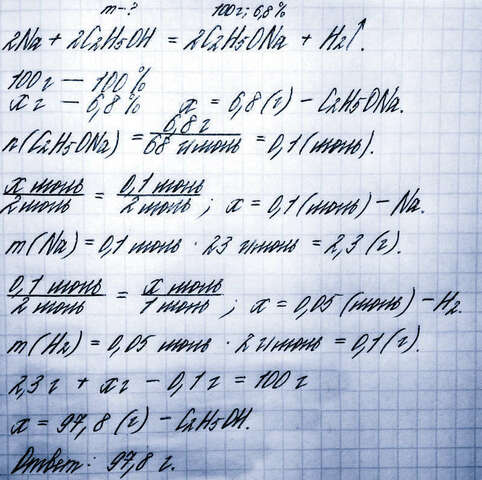 m-? 100г; 6,8%
2Na + 2C2H5OH = 2C2H5ONa + H2↑.
100г — 100%
xг — 6,8% x = 6,8(г) - C2H5ONa.
n(C2H5ONa) = 6,8г / 68 г/моль = 0,1(моль).
x моль / 2 моль = 0,1 моль / 2 моль ; x = 0,1(моль) - Na.
m(Na) = 0,1 моль · 23 г/моль = 2,3(г).
0,1 моль / 2 моль = x моль / 1 моль ; x = 0,05 (моль) - H2.
m(H2) = 0,05 моль · 2 г/моль = 0,1(г).
2,3г + xг - 0,1г = 100г
x = 97,8(г) - C2H5OH.
Ответ: 97,8 г.